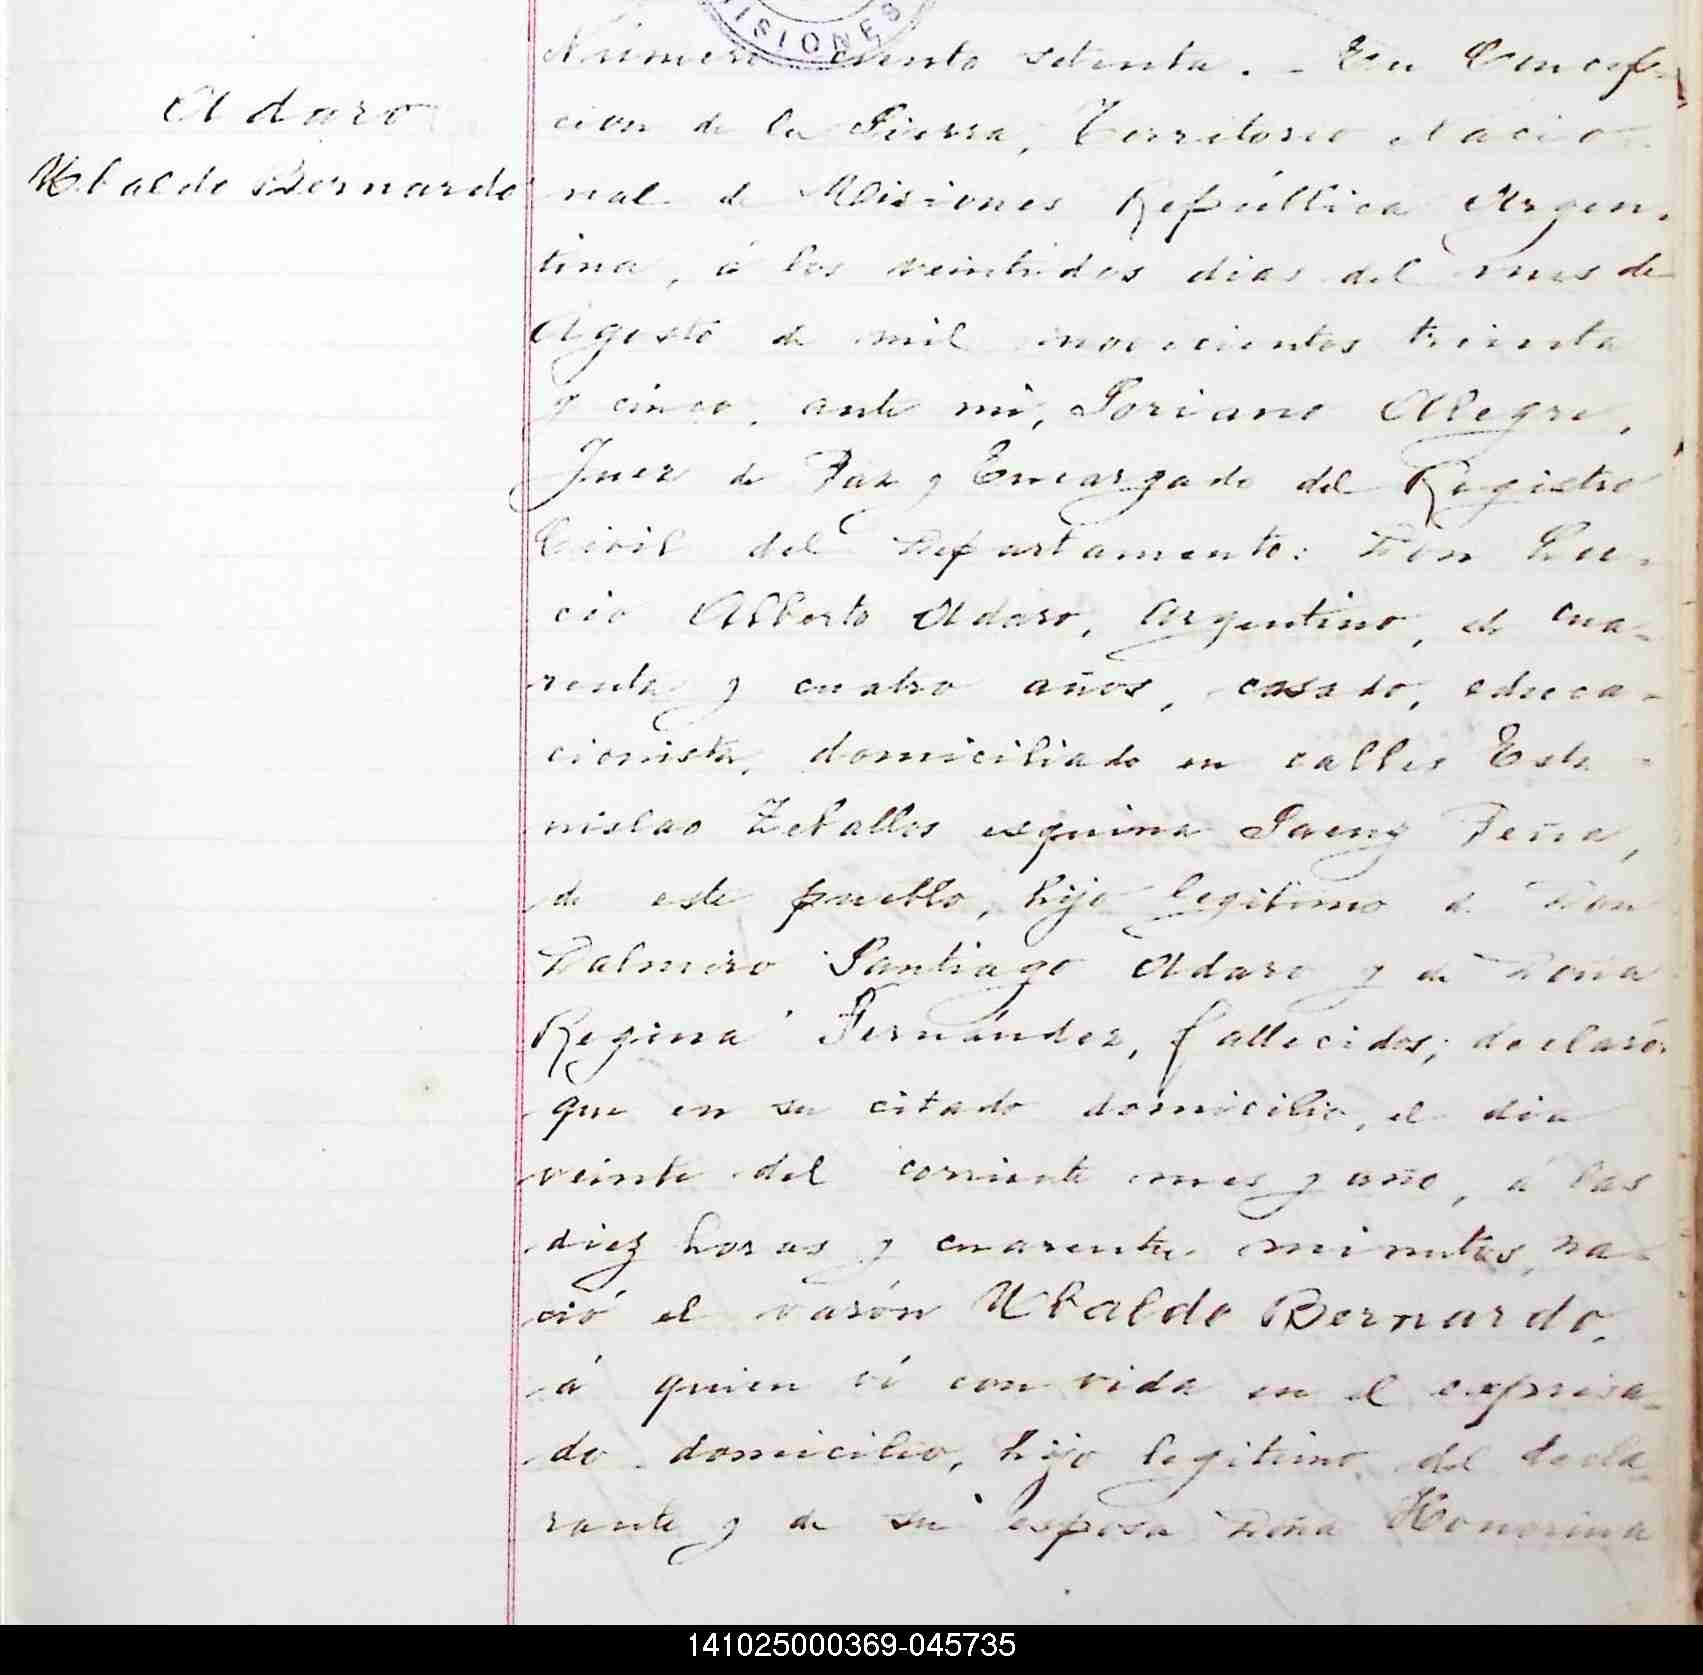 MISIONES
Adaro
Ubaldo Bernardo
Número ciento setenta. - En Concep-
cion de la Sierra, Territorio Nacio-
nal de Misiones República Argen-
tina, á los veintidos dias del mes de
Agosto de mil novecientos treinta
y cinco, ante mi, Soriano Alegre,
Juez de Paz y Encargado del Registro
Civil del Departamento: Don Lu-
cio Alberto Adaro, Argentino, de cua-
renta y cuatro años, casado, educa-
cionista, domiciliado en calles Esta-
nislao Zeballos esquina Saenz Peña,
de este pueblo, hijo legitimo de Don
Dalmiro Santiago Adaro y de Doña
Regina Fernández, fallecidos; declaró:
que en su citado domicilio, el dia
veinte del corriente mes y año, á las
diez horas y cuarenta minutos, na-
ció el varón Ubaldo Bernardo,
á quien ví con vida en el expresa-
do domicilio, hijo legitimo del decla-
rante y de su esposa Doña Honorina
141025000369-045735